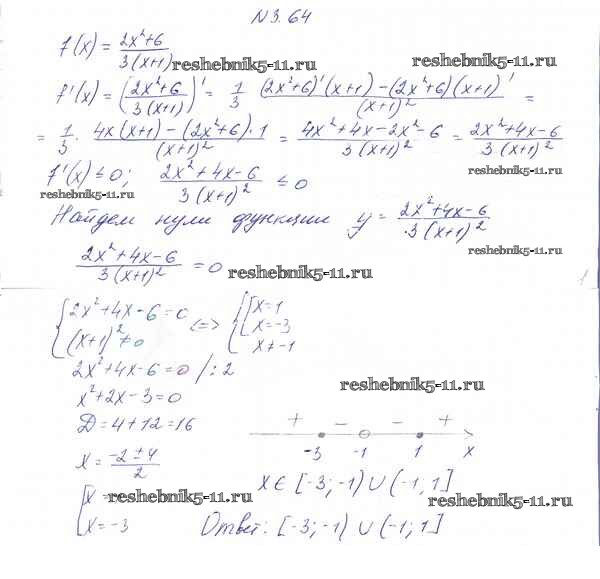 №3.64
f(x) = (2x²+6)/(3(x+1)) reshebnik5-11.ru
reshebnik5-11.ru
f'(x) = ((2x²+6)/(3(x+1)))' = 1/3 ((2x²+6)'(x+1) - (2x²+6)(x+1)')/(x+1)² =
= 1/3 · (4x(x+1) - (2x²+6)·1)/(x+1)² = (4x²+4x-2x²-6)/(3(x+1)²) = (2x²+4x-6)/(3(x+1)²)
f'(x) ≤ 0; (2x²+4x-6)/(3(x+1)²) ≤ 0 reshebnik5-11.ru
reshebnik5-11.ru
Найдем нули функции y = (2x²+4x-6)/(3(x+1)²)
reshebnik5-11.ru
(2x²+4x-6)/(3(x+1)²) = 0 reshebnik5-11.ru
{2x²+4x-6=0 {[x=1
{(x+1)²≠0 <=> [x=-3
{x≠-1
2x²+4x-6=0 /:2
reshebnik5-11.ru
x²+2x-3=0
D=4+12=16
+ - - +
-3 -1 1 x
x = (-2±4)/2
x∈[-3;-1)∪(-1;1]
[x= reshebnik5-11.ru reshebnik5-11.ru
[x=-3
Ответ: [-3;-1)∪(-1;1]